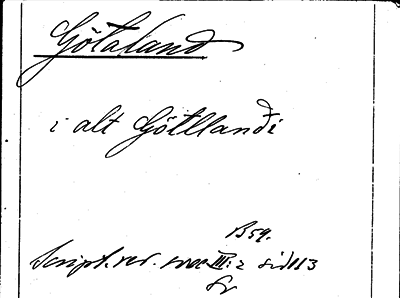 Götaland
i alt Götllandi
B 59.
Script. rer. svec III: 2 sid 113
Sv